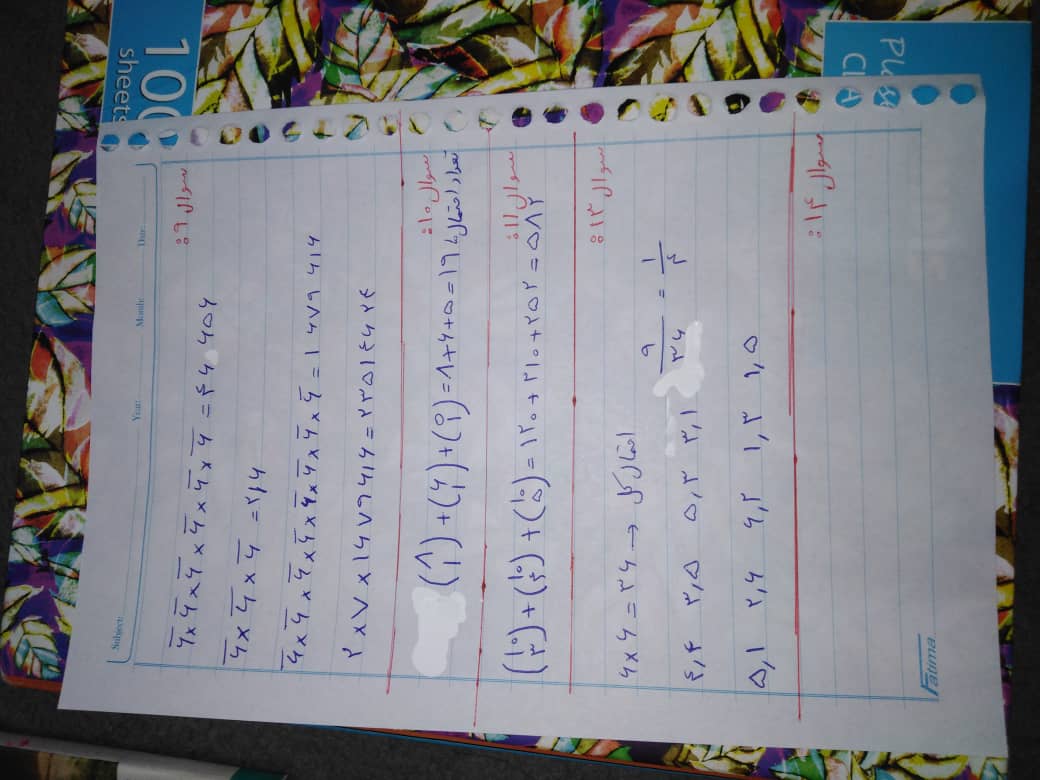 100
sheets
Subject: Year: Month: Date:
سوال ۹:
۶̄×۶̄×۶̄×۶̄×۶̄×۶̄ = ۴۶ ۶۵۶
۶̄×۶̄×۶̄ = ۲۱۶
۶̄×۶̄×۶̄×۶̄×۶̄×۶̄×۶̄×۶̄ = ۱۶۷۹۶۱۶
۲×۷×۱۶۷۹۶۱۶ = ۲۳۵۱۴۶۲۴
سوال ۱۰:
(۸ ۱)+(۶ ۱)+(۵ ۱)=۸+۶+۵=۱۹
سوال ۱۱:
(۱۰ ۳)+(۱۰ ۴)+(۱۰ ۵)=۱۲۰+۲۱۰+۲۵۲=۵۸۲
سوال ۱۳:
۶×۶=۳۶ → احتمال کل
۹/۳۶ = ۱/۴
۴,۴ ۳,۵ ۵,۳ ۳,۱
۵,۱ ۲,۶ ۶,۲ ۱,۳ ۱,۵
سوال ۱۴:
Fatima